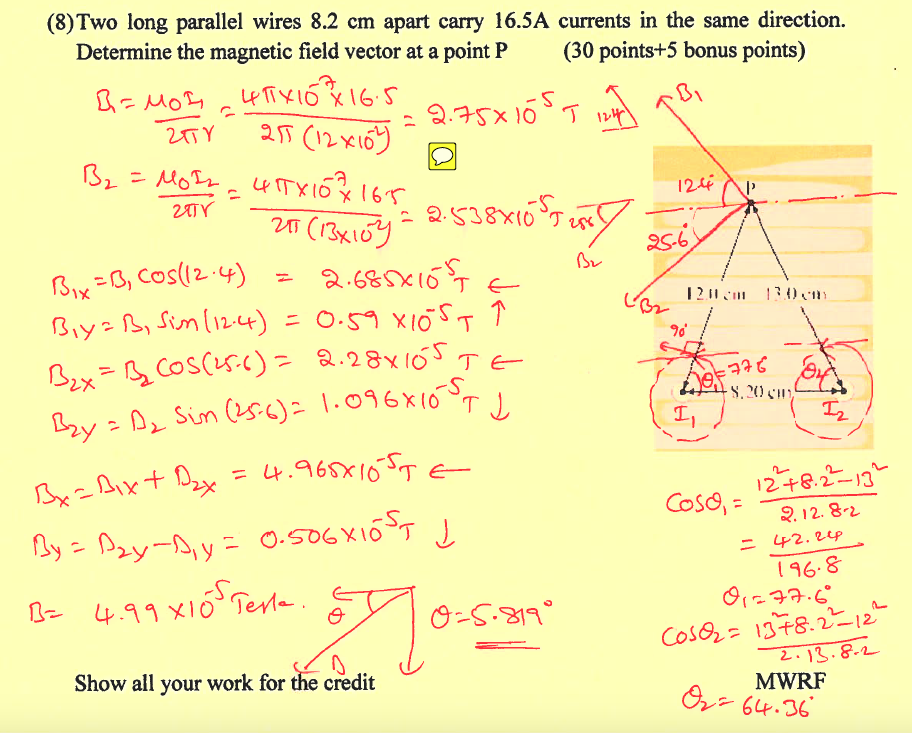 (8) Two long parallel wires 8.2 cm apart carry 16.5A currents in the same direction.
Determine the magnetic field vector at a point P (30 points+5 bonus points)
B₁ = μ₀I₁ / 2πr = 4π×10⁻⁷ × 16.5 / 2π (12×10⁻²) = 2.75×10⁻⁵ T 12.4 B₁
B₂ = μ₀I₂ / 2πr = 4π×10⁻⁷ × 16.5 / 2π (13×10⁻²) = 2.538×10⁻⁵ T 25.6 B₂
12.4° P
25.6°
B₂
12.0 cm 13.0 cm
90°
θ₁=77.6 θ₂
8.20 cm
I₁ I₂
B₁x = B₁ cos(12.4) = 2.685×10⁻⁵ T ←
B₁y = B₁ Sin(12.4) = 0.59 ×10⁻⁵ T ↑
B₂x = B₂ cos(25.6) = 2.28×10⁻⁵ T ←
B₂y = B₂ Sin(25.6) = 1.096×10⁻⁵ T ↓
Bx = B₁x + B₂x = 4.965×10⁻⁵ T ←
By = B₂y − B₁y = 0.506×10⁻⁵ T ↓
B = 4.99 ×10⁻⁵ Tesla. θ B θ=5.819°
cosθ₁ = 12²+8.2²−13² / 2.12.8.2
= 42.24 / 196.8
θ₁ = 77.6°
cosθ₂ = 13²+8.2²−12² / 2.13.8.2
θ₂ = 64.36°
Show all your work for the credit MWRF